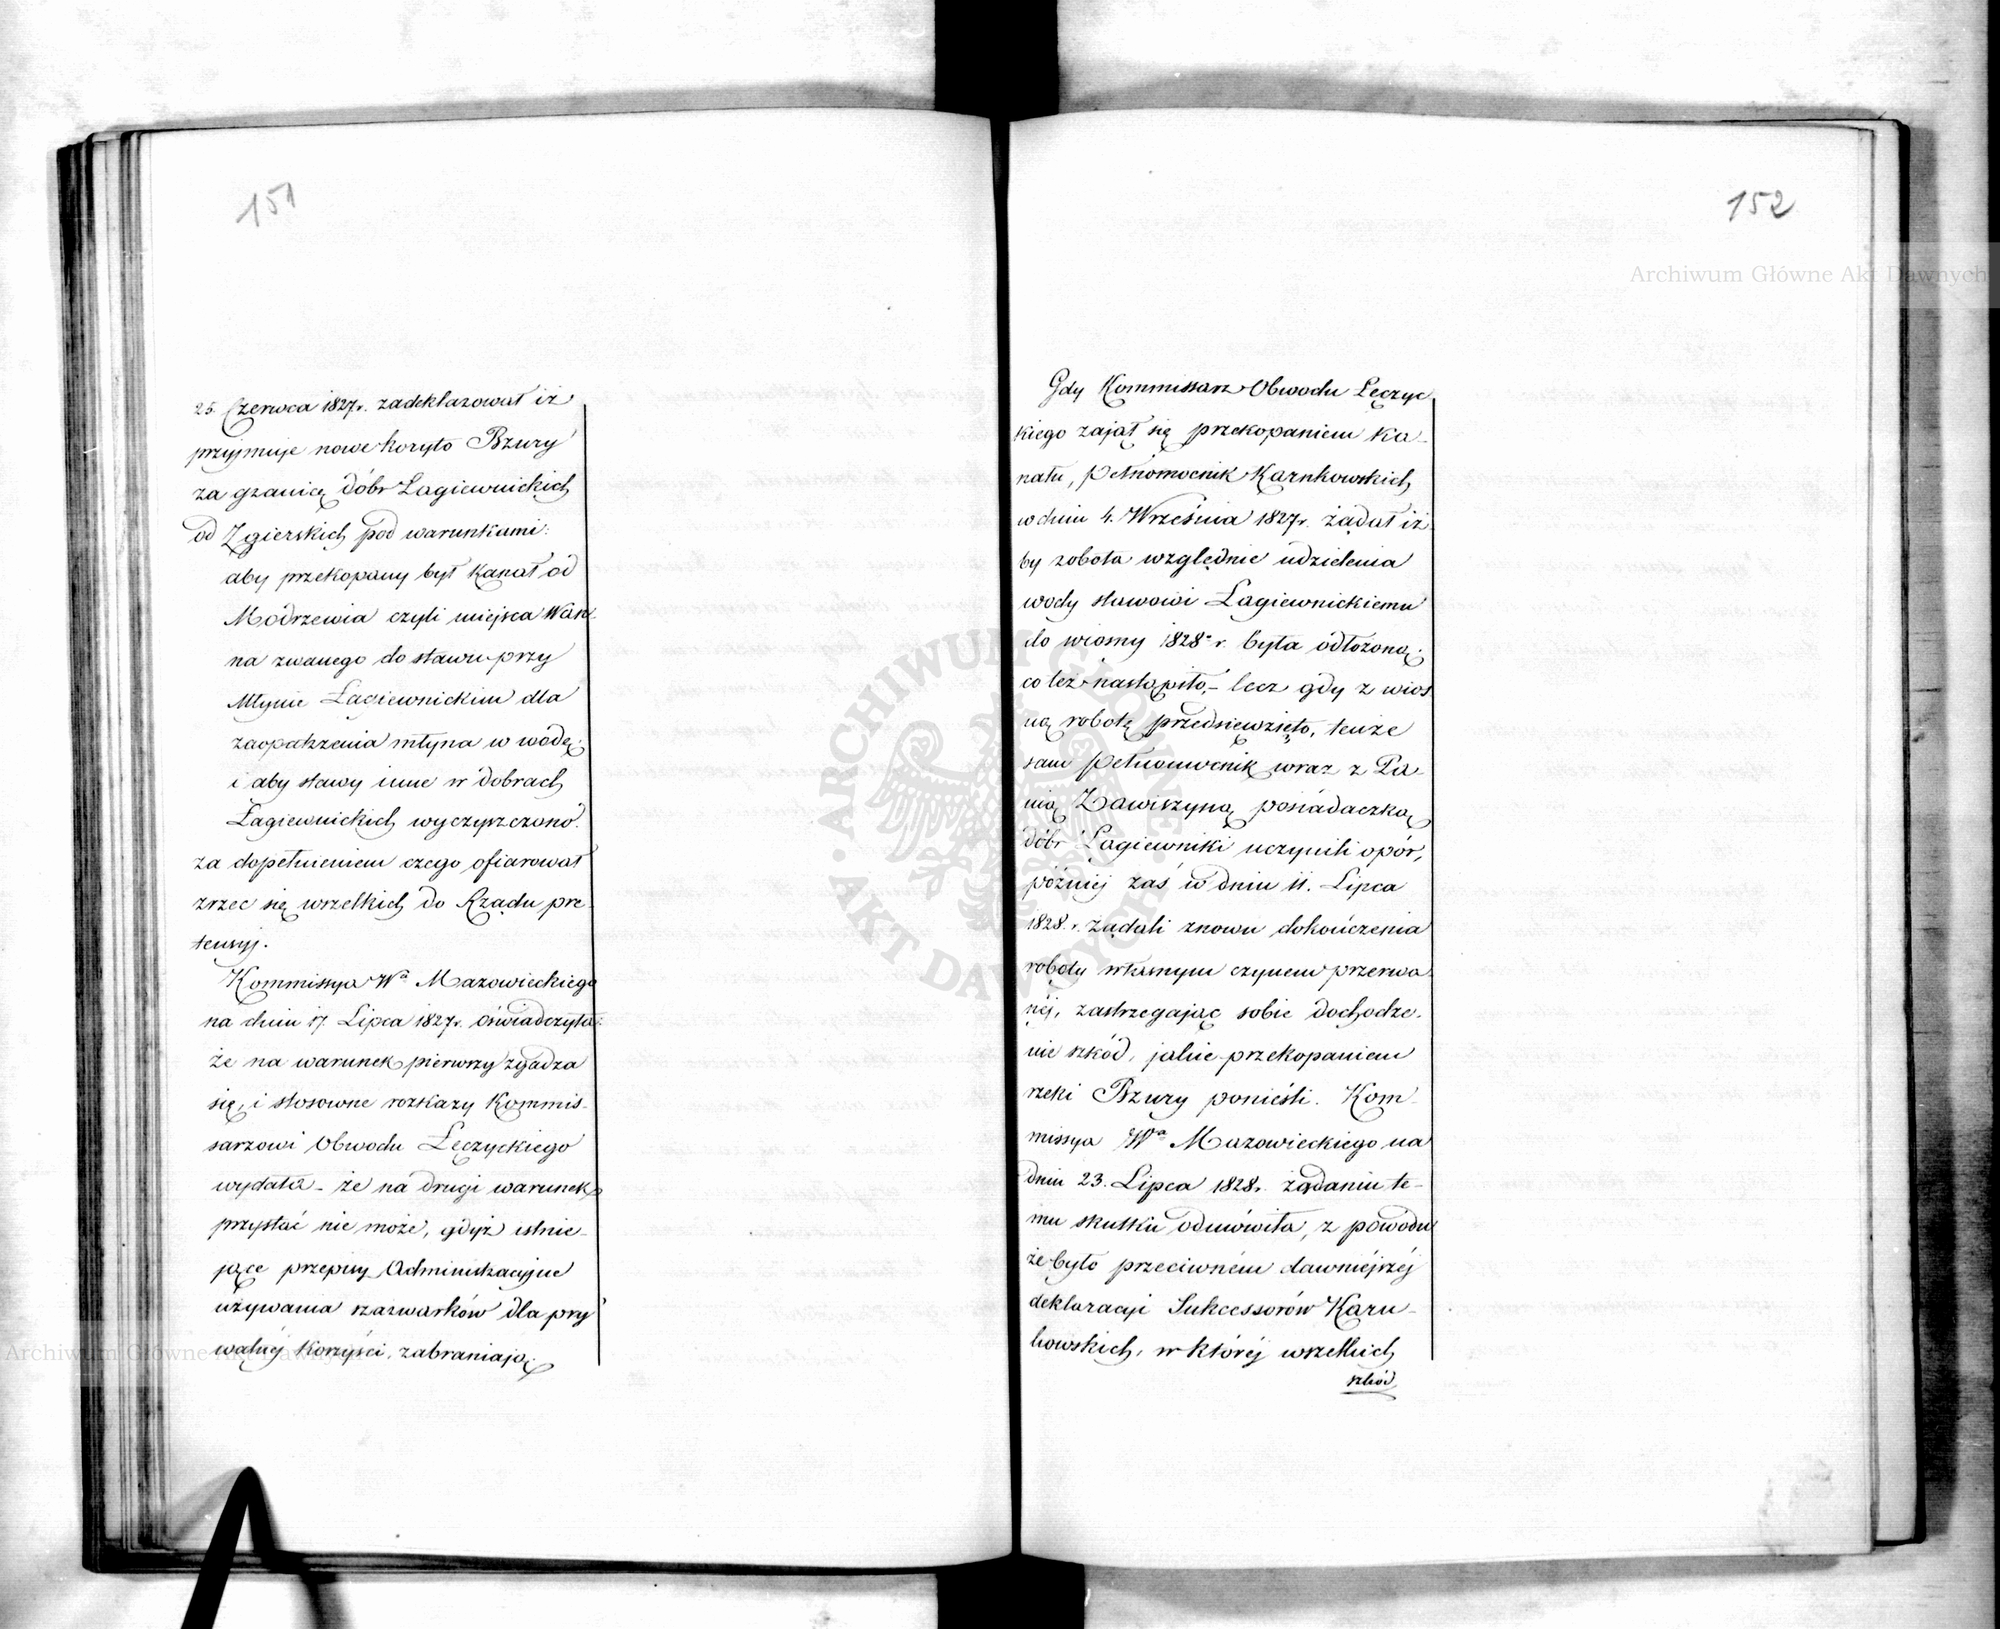 151
25. Czerwca 1827r. zadeklarował iż
przyjmuje nowe koryto Bzury
za granicę dóbr Łagiewnickich
od Zgierskich pod warunkami:
aby przekopany był kanał od
Modrzewia czyli miejsca Wan-
na zwanego do stawu przy
Młynie Łagiewnickim dla
zaopatrzenia młyna w wodę;
i aby stawy inne w dobrach
Łagiewnickich wyczyszczono.
za dopełnieniem czego ofiarował
zrzec się wszelkich do Rządu pre-
tensyj.
Kommissya Wa Mazowieckiego
na dniu 17. Lipca 1827r. oświadczyła:
że na warunek pierwszy zgadza
się, i stosowne rozkazy Kommis-
sarzowi Obwodu Łęczyckiego
wydała - że na drugi warunek
przystać nie może, gdyż istnie-
jące przepisy Administracyjne
używania szarwarków dla pry
watnéj korzyści, zabraniają;
152
Gdy Kommissarz Obwodu Łęczyc
kiego zajął się przekopaniem ka-
nału, pełnomocnik Karnkowskich
w dniu 4. Września 1827r. żądał iż
by robota względnie udzielenia
wody stawowi Łagiewnickiemu
do wiosny 1828o r. była odłożoną;
co też nastąpiło, - lecz gdy z wios
ną robotę przedsięwzięto, tenże
sam pełnomocnik wraz z Pa-
nią Zawiszyną posiadaczką
dóbr Łagiewniki uczynili opór,
później zaś w dniu 11. Lipca
1828. r. żądali znowu dokończenia
roboty własnym czynem przerwa
néj, zastrzegając sobie dochodze-
nie szkód, jakie przekopaniem
rzeki Bzury ponieśli. Kom-
missya Wa Mazowieckiego na
dniu 23. Lipca 1828r. żądaniu te-
mu skutku odmówiła, z powodu
że było przeciwném dawniejszéj
deklaracyi Sukcessorów Karn-
kowskich, w któréj wszelkich
szkód
Archiwum Główne Akt Dawnych
Archiwum Główne Akt Dawnych
ARCHIWUM GŁÓWNE
AKT DAWNYCH